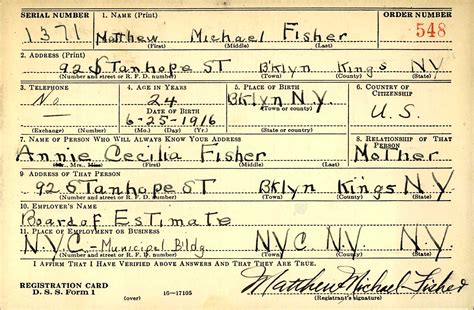 SERIAL NUMBER 1. NAME (Print) ORDER NUMBER
1371 Matthew Michael Fisher 548
(First) (Middle) (Last)
2. ADDRESS (Print)
92 Stanhope ST B'klyn Kings NY
(Number and street or R. F. D. number) (Town) (County) (State)
3. TELEPHONE 4. AGE IN YEARS 5. PLACE OF BIRTH 6. COUNTRY OF CITIZENSHIP
No 24 Bklyn N.Y. U.S.
DATE OF BIRTH (Town or county)
6-25-1916
(Exchange) (Number) (Mo.) (Day) (Yr.) (State or country)
7. NAME OF PERSON WHO WILL ALWAYS KNOW YOUR ADDRESS 8. RELATIONSHIP OF THAT PERSON
Annie Cecilia Fisher Mother
(Mr., Mrs., Miss) (First) (Middle) (Last)
9. ADDRESS OF THAT PERSON
92 Stanhope ST Bklyn Kings NY
(Number and street or R. F. D. number) (Town) (County) (State)
10. EMPLOYER'S NAME
Board of Estimate
11. PLACE OF EMPLOYMENT OR BUSINESS
N.Y.C-Municipal Bldg. NYC NY. NY
(Number and street or R. F. D. number) (Town) (County) (State)
I AFFIRM THAT I HAVE VERIFIED ABOVE ANSWERS AND THAT THEY ARE TRUE.
REGISTRATION CARD Matthew Michael Fisher
D. S. S. Form 1 (over) 16-17105 (Registrant's signature)